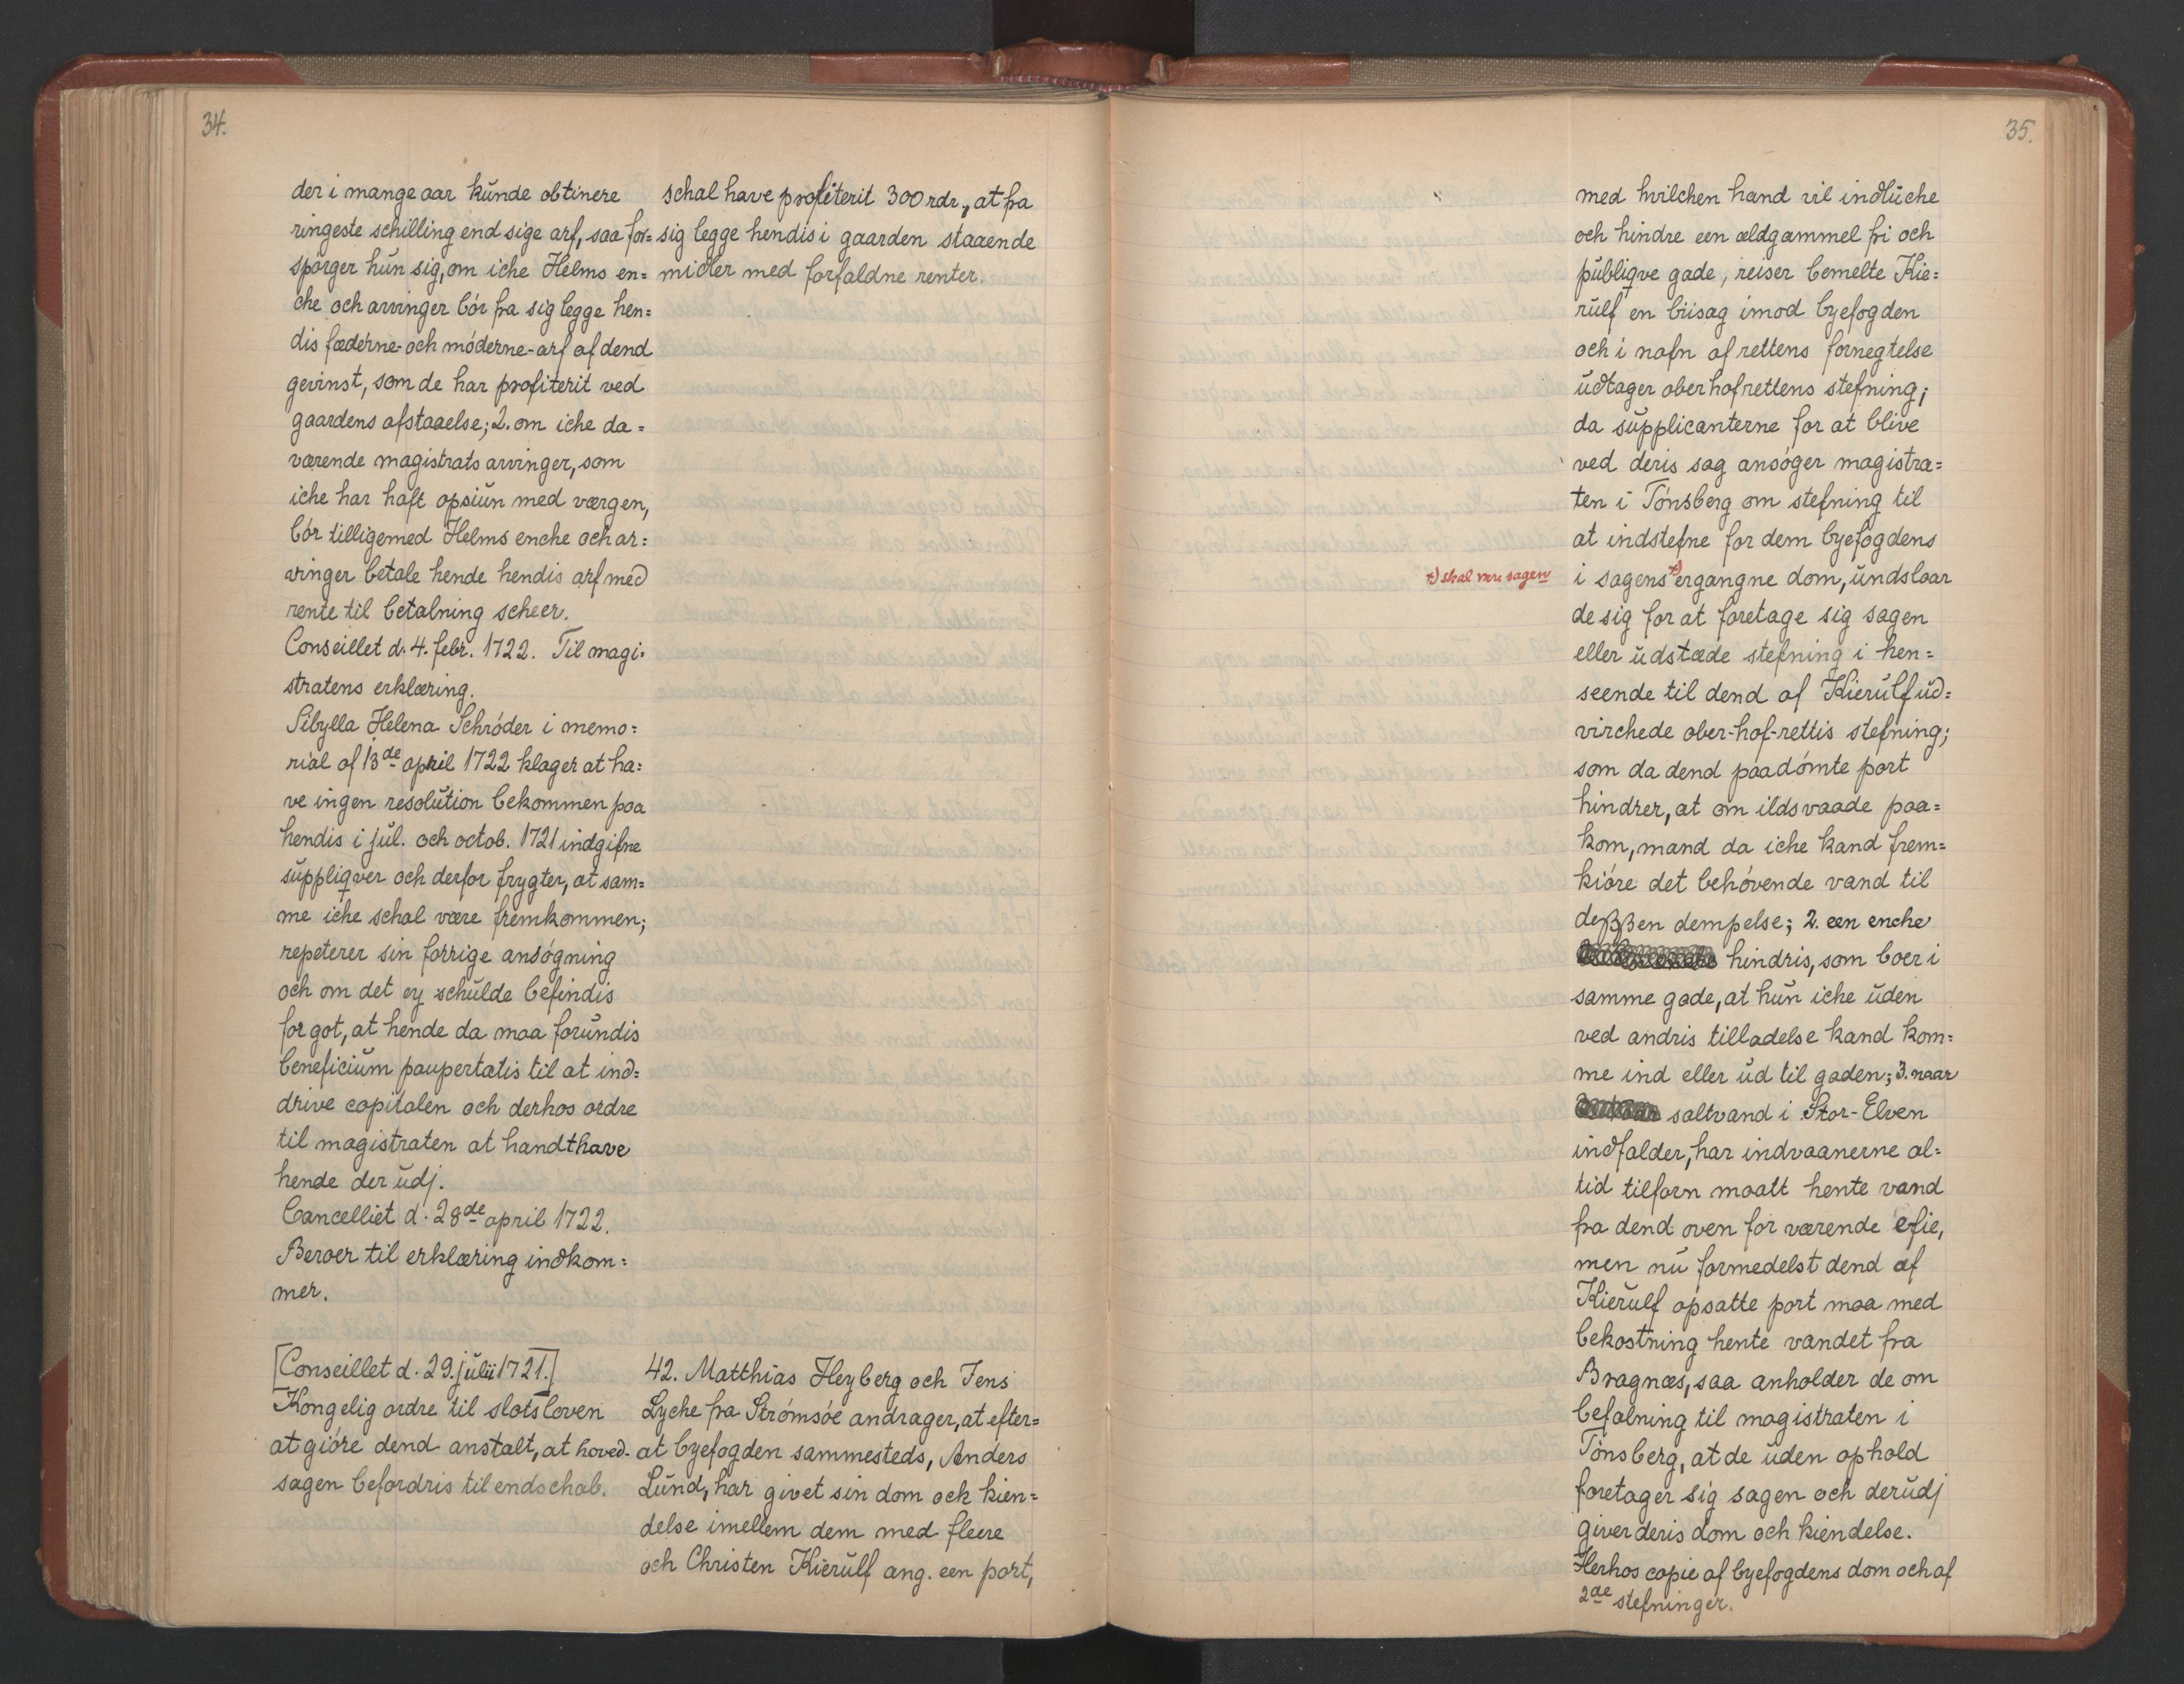 34.
der i mange aar kunde obtinere
ringeste schilling end sige arf, saa for=
spörger hun sig, om iche Helms en=
che och arvinger bör fra sig legge hen=
dis fæderne- och möderne-arf af dend
gevinst, som de har profiterit ved
gaardens afstaaelse; 2. om iche da=
værende magistrats arvinger, som
iche har haft opsiun med værgen,
bör tilligemed Helms enche och ar=
vinger betale hende hendis arf med
rente til betalning scheer.
Conseillet d. 4. febr. 1722. Til magi=
stratens erklæring.
Sibylla Helena Schröder i memo=
rial af 13de april 1722 klager at ha=
ve ingen resolution bekommen paa
hendis i jul. och octob. 1721 indgifne
suppliqver och derfor frygter, at sam=
me iche schal være fremkommen;
repeterer sin forrige ansøgning
och om det ey schulde befindis
for got, at hende da maa forundis
beneficium paupertatis til at ind=
drive capitalen och derhos ordre
til magistraten at handthave
hende der udj.
Cancelliet d. 28de april 1722.
Beroer til erklæring indkom=
mer.
[Conseillet d. 29. julii 1721.]
Kongelig ordre til slotsloven
at giöre dend anstalt, at hoved=
sagen befordris til endschab.
schal have profiterit 300 rdr., at fra
sig legge hendis i gaarden staaende
midler med forfaldne renter.
42. Matthias Heyberg och Jens
Lyche fra Strömsöe andrager, at efter=
at byefogden sammesteds, Anders
Lund, har givet sin dom ock kien=
delse imellem dem med fleere
och Christen Kierulf ang. een port,
35.
med hvilchen hand vil indluche
och hindre een ældgammel fri och
publiqve gade, reiser bemelte Kie=
rulf en biisag imod byefogden
och i nafn af rettens fornegtelse
udtager oberhofrettens stefning;
da supplicanterne for at blive
ved deris sag ansöger magistra=
ten i Tönsberg om stefning til
at indstefne for dem byefogdens
+) skal være sagen
i sagens +) ergangne dom, undslaar
de sig for at foretage sig sagen
eller udstæde stefning i hen=
seende til dend af Kierulf ud=
virchede ober-hof-rettis stefning;
som da dend paadömte port
hindrer, at om ildsvaade paa=
kom, mand da iche kand frem=
kiöre det behövende vand til
deßßen dempelse; 2. een enche
hindris, som boer i
samme gade, at hun iche uden
ved andris tilladelse kand kom=
me ind eller ud til gaden; 3. naar
saltvand i Stor-Elven
indfalder, har indvaanerne al=
tid tilforn maatt hente vand
fra dend oven for værende efie,
men nu formedelst dend af
Kierulf opsatte port maa med
bekostning hente vandet fra
Bragnæs, saa anholder de om
befalning til magistraten i
Tönsberg, at de uden ophold
foretager sig sagen och derudj
giver deris dom och kiendelse.
Herhos copie af byefogdens dom och af
2de stefninger.